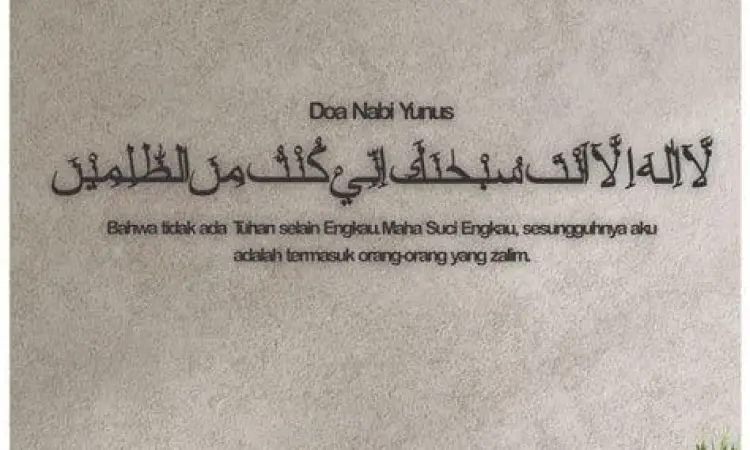 Doa Nabi Yunus
لَّآ اِلٰهَ اِلَّآ اَنْتَ سُبْحٰنَكَ اِنِّيْ كُنْتُ مِنَ الظّٰلِمِيْنَ
Bahwa tidak ada Tuhan selain Engkau. Maha Suci Engkau, sesungguhnya aku
adalah termasuk orang-orang yang zalim.